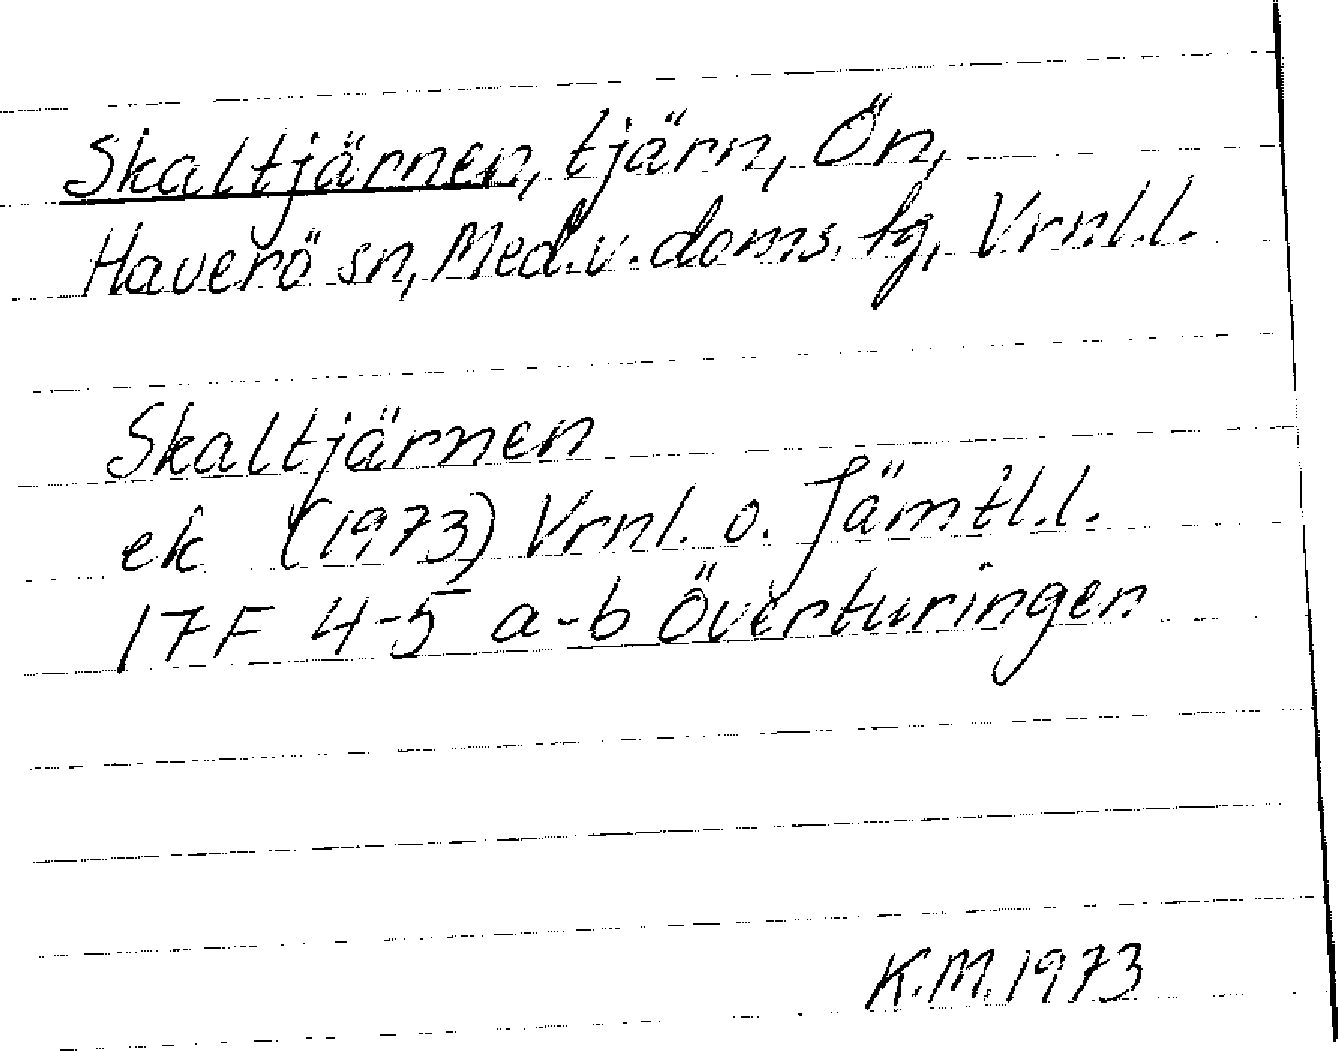 Skaltjärnen, tjärn, Ön,
Haverö sn, Med.v.doms.tg, Vrnl.l.
Skaltjärnen
ek (1973) Vrnl. o. Jämtl.l.
17F 4-5 a-b Överturingen
K.M.1973